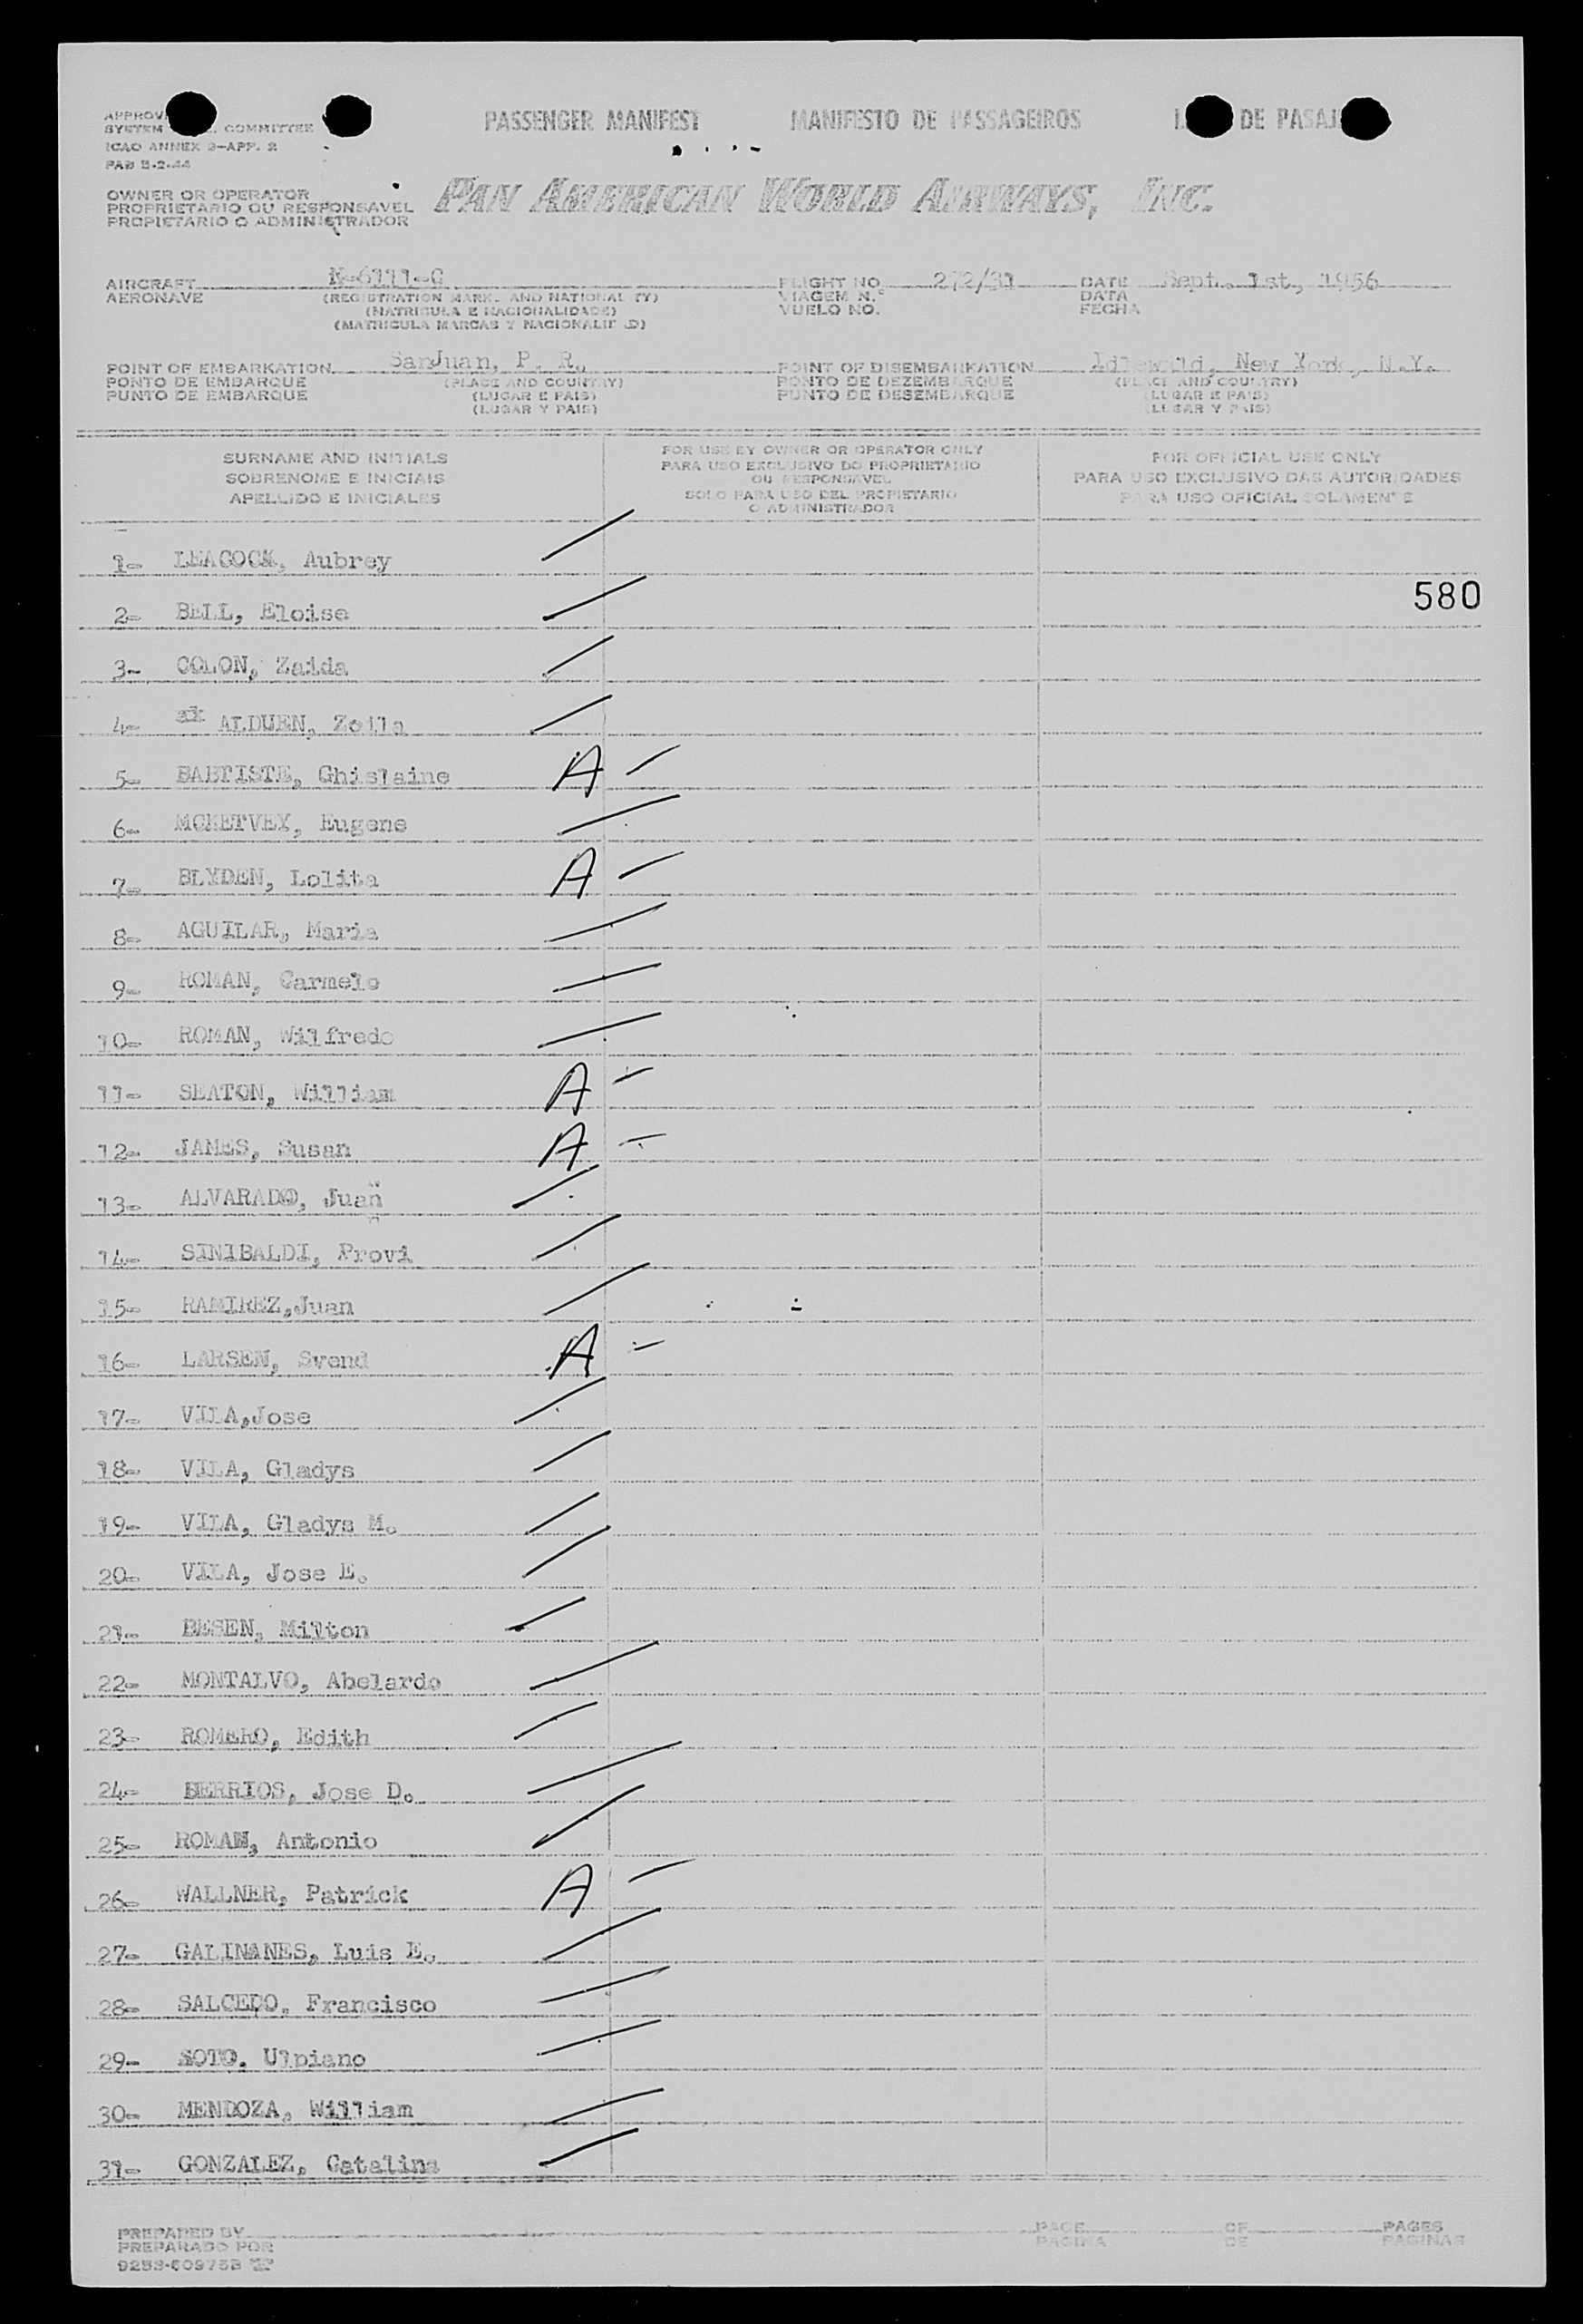 PASSENGER MANIFEST MANIFESTO DE PASSAGEIROS DE
SYSTEM COMMITTEE
ICAO ANNEX 2-APP. 2
OWNER OR OPERATOR
PROPRIETARIO OU RESPONSAVEL
PROPIETARIO O ADMINISTRADOR
PAN AMERICAN WORLD AIRWAYS, INC.
AIRCRAFT N-6111-C FLIGHT NO. 272/31 DATE Sept. 1st, 1956
AERONAVE (REGISTRATION MARK. AND NATIONALITY) VIAGEM N.º DATA
(MATRICULA E NACIONALIDADE) VUELO NO. FECHA
(MATRICULA MARCAS Y NACIONALIDAD)
POINT OF EMBARKATION SanJuan, P. R. POINT OF DISEMBARKATION Idlewild, New York, N.Y.
PONTO DE EMBARQUE (PLACE AND COUNTRY) PONTO DE DEZEMBARQUE (PLACE AND COUNTRY)
PUNTO DE EMBARQUE (LUGAR E PAIS) PUNTO DE DESEMBARQUE (LUGAR E PAIS)
(LUGAR Y PAIS) (LUGAR Y PAIS)
SURNAME AND INITIALS
SOBRENOME E INICIAIS
APELLIDO E INICIALES
FOR USE BY OWNER OR OPERATOR ONLY
PARA USO EXCLUSIVO DO PROPRIETARIO
OU RESPONSAVEL
SOLO PARA USO DEL PROPIETARIO
O ADMINISTRADOR
FOR OFFICIAL USE ONLY
PARA USO EXCLUSIVO DAS AUTORIDADES
PARA USO OFICIAL SOLAMENTE
1- LEACOCK, Aubrey
580
2- BELL, Eloise
3- COLON, Zaida
4- ALDUEN, Zoila
5- BAPTISTE, Ghislaine A
6- Eugene
7- BLYDEN, Lolita A
8- AGUILAR, Maria
9- ROMAN, Carmelo
10- ROMAN, Wilfredo
11- SEATON, William A
12- JAMES, Susan A
13- ALVARADO, Juan
14- SINIBALDI, Provi
15- RAMIREZ,Juan
16- LARSEN, Svend A
17- VILA,Jose
18- VILA, Gladys
19- VILA, Gladys M.
20- VILA, Jose E.
21- BESEN, Milton
22- MONTALVO, Abelardo
23- ROMERO, Edith
24- BERRIOS, Jose D.
25- ROMAN, Antonio
26- WALLNER, Patrick A
27- GALINANES, Luis E.
28- SALCEDO, Francisco
29- SOTO. Ulpiano
30- MENDOZA, William
31- GONZALEZ, Catalina
PREPARED BY PAGE OF PAGES
PREPARADO POR PAGINA DE PAGINAS